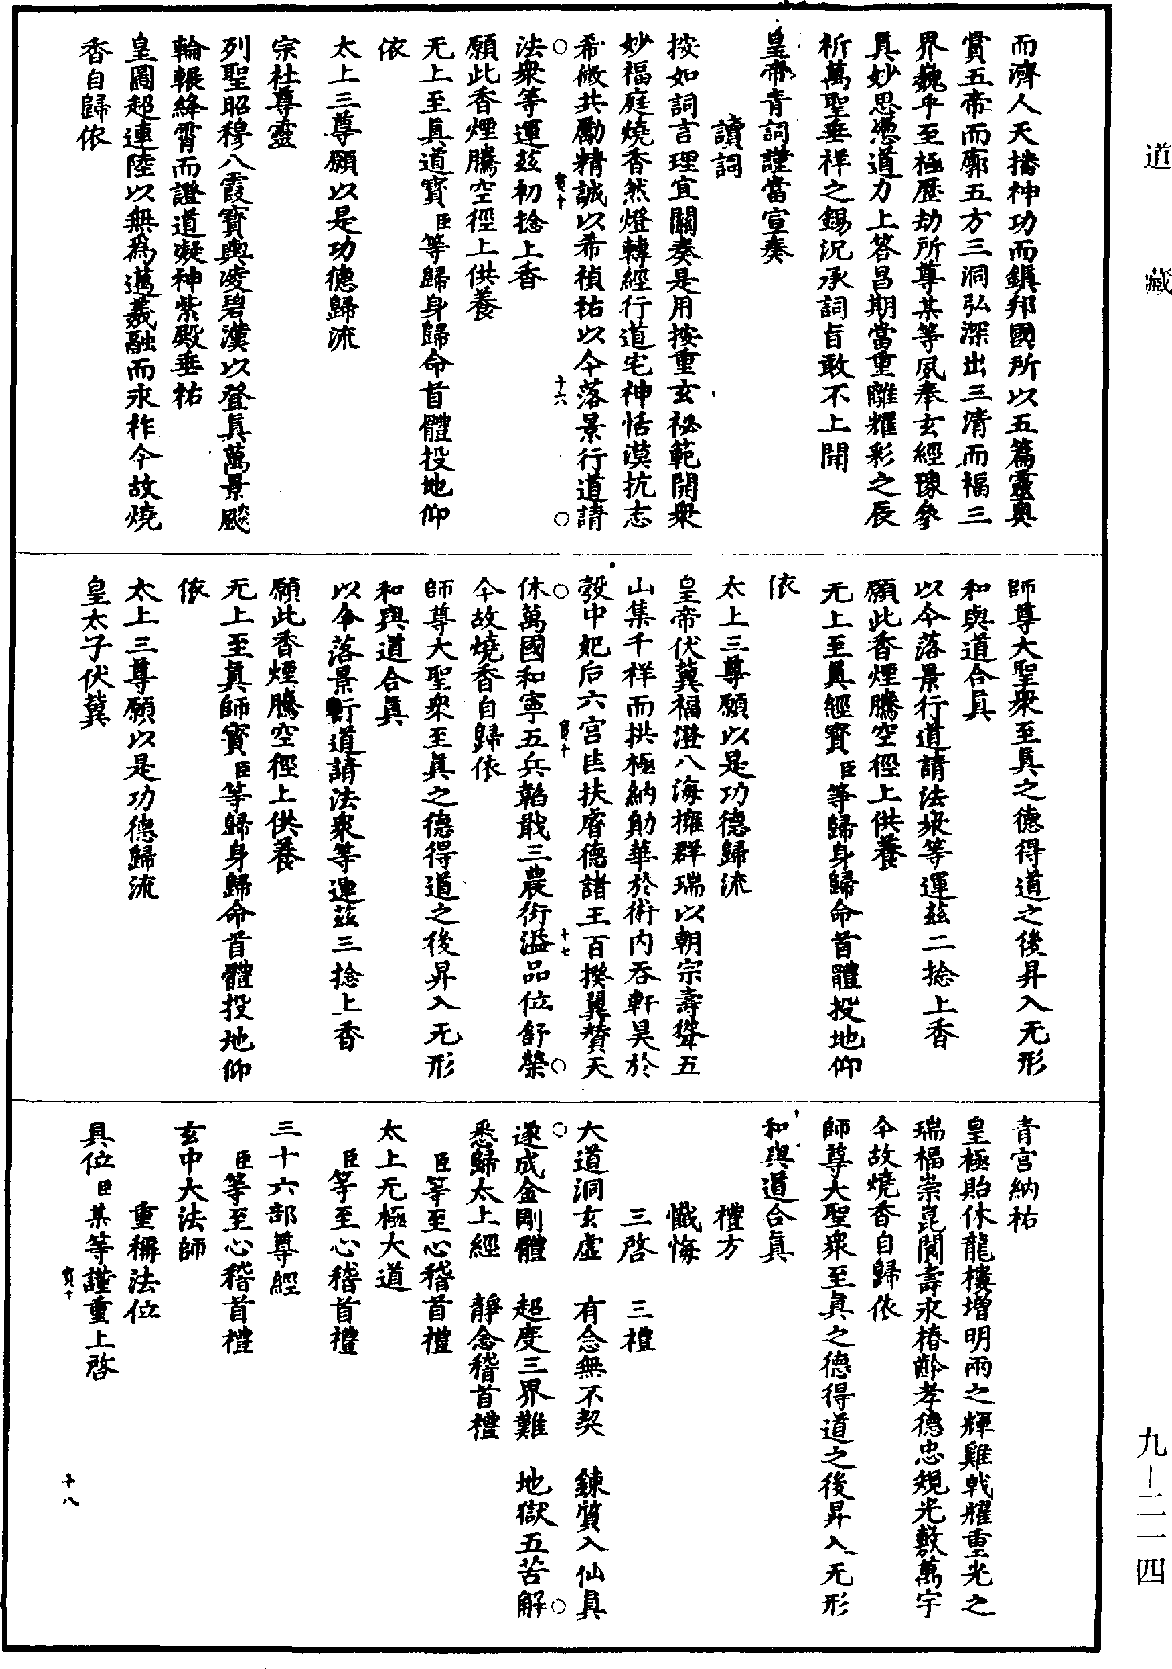 道藏
而濟人天播神功而鎮邦國所以五篇靈奧
賞五帝而廓五方三洞弘深出三清而福三
界巍乎至極歷劫所尊某等夙奉玄經豫參
真妙思憑道力上答昌期當重離耀彩之辰
祈萬聖垂祥之錫況承詞旨敢不上聞
皇帝青詞謹當宣奏
讀詞
按如詞言理宜關奏是用按重玄祕範開衆
妙福庭燒香然燈轉經行道宅神恬漠抗志
希微共勵精誠以希禎祐以今落景行道請
十六
法衆等運茲初捻上香
願此香煙騰空徑上供養
无上至真道寶臣等歸身歸命首體投地仰
依
太上三尊願以是功德歸流
宗社尊靈
列聖昭穆八霞寶輿凌碧漢以登真萬景飈
輪輾絳霄而證道凝神紫殿垂祐
皇圖超連陸以無爲邁羲融而永祚今故燒
香自歸依
師尊大聖衆至真之德得道之後昇入无形
和與道合真
以今落景行道請法衆等運茲二捻上香
願此香煙騰空徑上供養
无上至真經寶臣等歸身歸命首體投地仰
依
太上三尊願以是功德歸流
皇帝伏冀福澄八海擁羣瑞以朝宗壽聳五
山集千祥而拱極納勛華於術內吞軒昊於
彀中妃后六宮匡扶睿德諸王百揆翼贊天
十七
休萬國和寧五兵韜戢三農衍溢品位舒榮
今故燒香自歸依
師尊大聖衆至真之德得道之後昇入无形
和與道合真
以今落景行道請法衆等運茲三捻上香
願此香煙騰空徑上供養
无上至真師寶臣等歸身歸命首體投地仰
依
太上三尊願以是功德歸流
皇太子伏冀
青宮納祐
皇極貽休龍樓增明兩之輝雞戟耀重光之
瑞福崇崑閬壽永椿齡孝德忠規光敷萬宇
今故燒香自歸依
師尊大聖衆至真之德得道之後昇入无形
和與道合真
禮方
懺悔
三啓　三禮
大道洞玄虛　有念無不契　鍊質入仙真
遂成金剛體　超度三界難　地獄五苦解
悉歸太上經　靜念稽首禮
臣等至心稽首禮
太上无極大道
臣等至心稽首禮
三十六部尊經
臣等至心稽首禮
玄中大法師
重稱法位
具位臣某等謹重上啓
十八
九—二一四